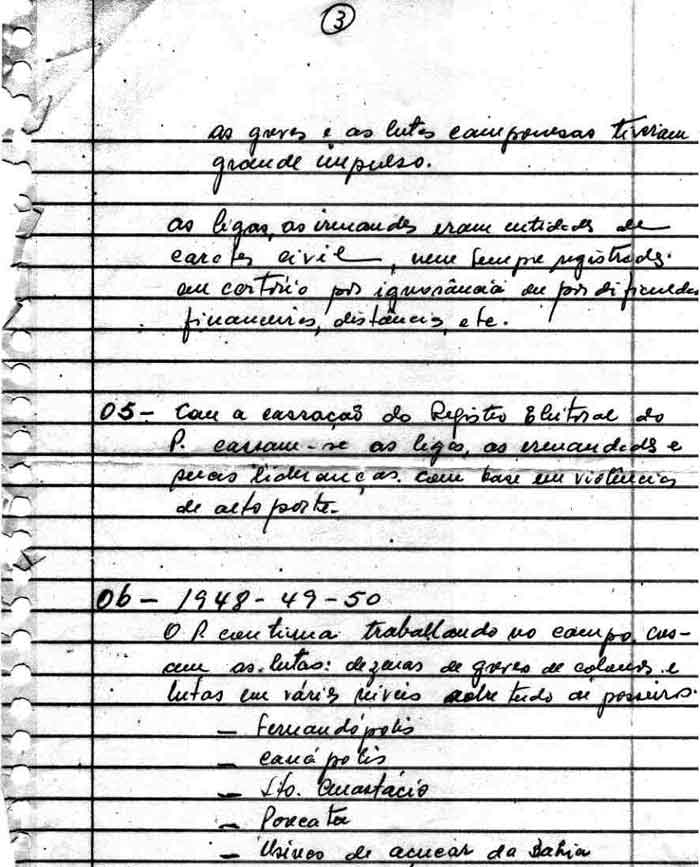 3
as greves e as lutas camponesas tiveram
grande impulso.
as ligas, as irmandes eram entidades de
carater civil, nem sempre registrads.
em cartório por ignorância ou por dificuldes
financeiras, distância, etc.
05- Com a cassação do Registro Eleitoral do
P. cassam-se as ligas, as irmandades e
suas lideranças. com base em violências
de alto porte.
06- 1948-49-50
O P. continua trabalhando no campo.
as lutas: dezenas de greves de colonos e
lutas em vários níveis sobretudo de posseiros.
- Fernandópolis
- canápolis
- Sto. Anastácio
- Porecatu
- Usinas de açucar da Bahia